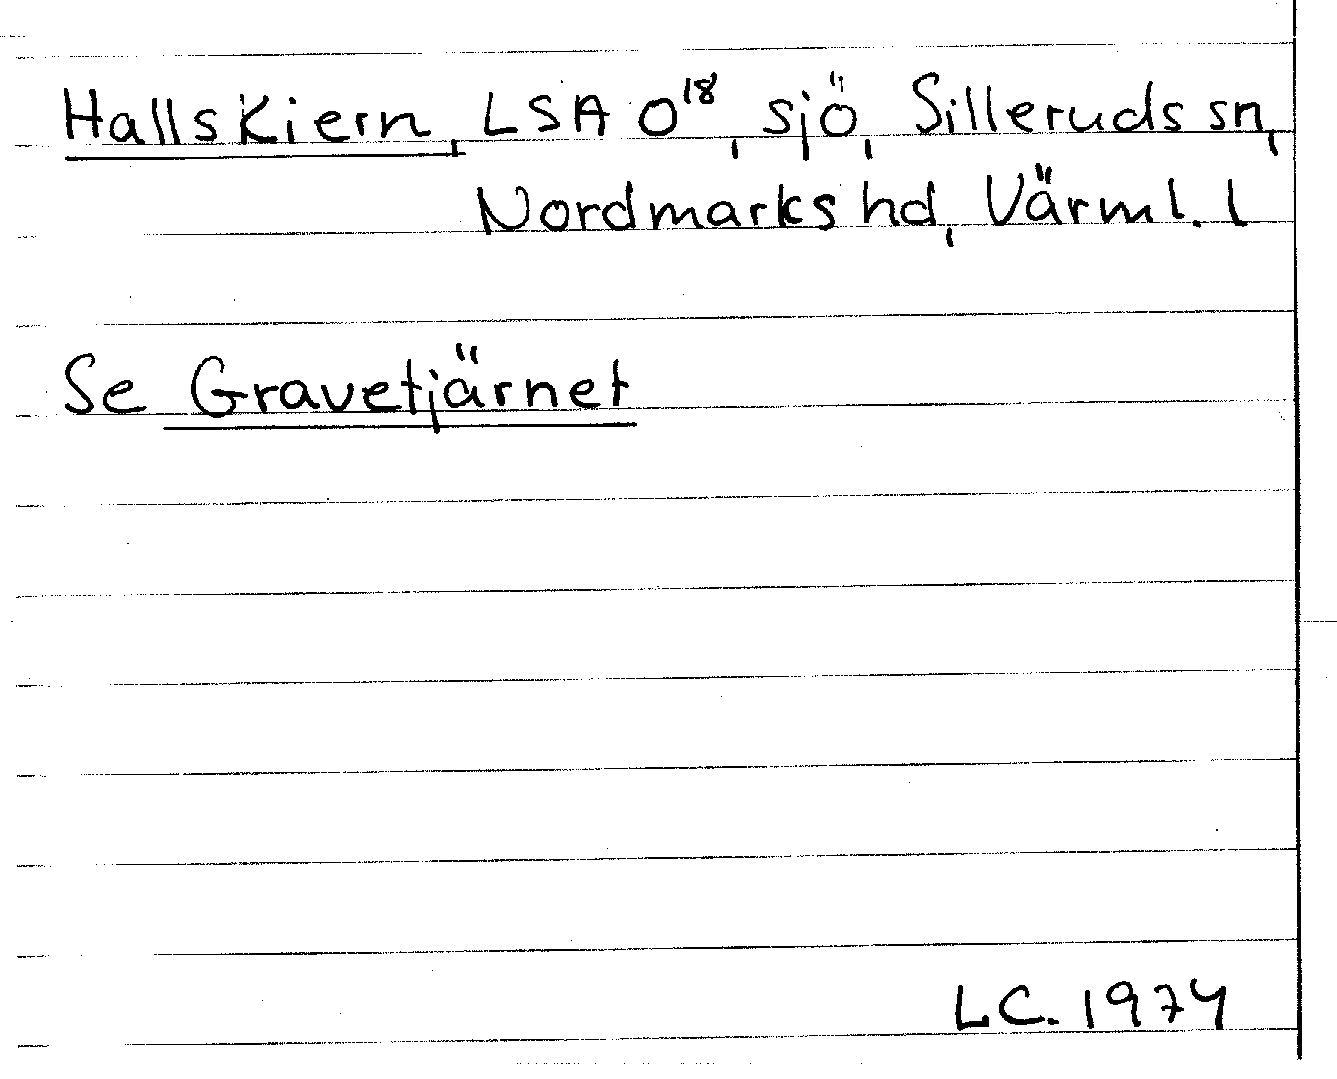 Hallskiern, LSA O18, sjö, Silleruds sn,
Nordmarks hd, Värml. l
Se Gravetjärnet
LC. 1974